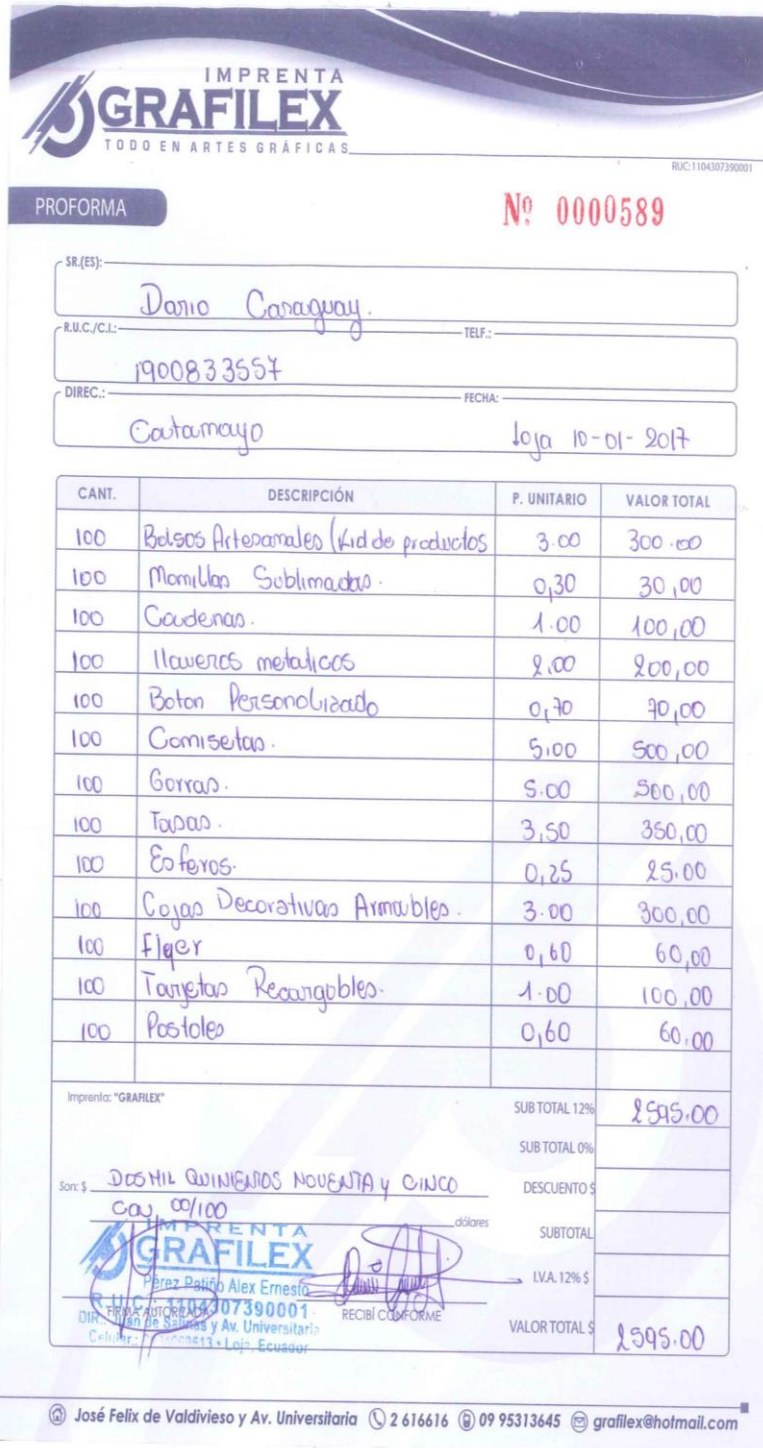 IMPRENTA
GRAFILEX
TODO EN ARTES GRÁFICAS
RUC:1104307390001
PROFORMA
Nº 0000589
SR.(ES):
Dario Caraguay.
R.U.C./C.I.: TELF.:
1900833557
DIREC.: FECHA:
Catamayo loja 10-01-2017
CANT. DESCRIPCIÓN P. UNITARIO VALOR TOTAL
100 Bolsos Artesanales (Kid de productos 3.00 300.00
100 Manillas Sublimadas. 0,30 30,00
100 Cadenas. 1.00 100,00
100 llaveros metalicos 2.00 200,00
100 Boton Personalizado 0,70 70,00
100 Camisetas. 5.00 500,00
100 Gorras. 5.00 500,00
100 Tazas. 3,50 350,00
100 Esferos. 0,25 25.00
100 Cajas Decorativas Armables. 3.00 300,00
100 Flyer 0,60 60,00
100 Tarjetas Recargables. 1.00 100,00
100 Postales 0,60 60.00
Imprenta: "GRAFILEX" SUB TOTAL 12% 2595.00
SUB TOTAL 0%
Son: $ DOS MIL QUINIENTOS NOVENTA y CINCO DESCUENTO $
CON 00/100 dólares
SUBTOTAL
IMPRENTA
GRAFILEX
Perez Patiño Alex Ernesto I.V.A. 12% $
R.U.C. 1104307390001
FIRMA AUTORIZADA RECIBÍ CONFORME
DIR.: Juan de Salinas y Av. Universitaria VALOR TOTAL $ 2595.00
Celular: 3513 • Loja, Ecuador
José Felix de Valdivieso y Av. Universitaria 2 616616 09 95313645 grafilex@hotmail.com